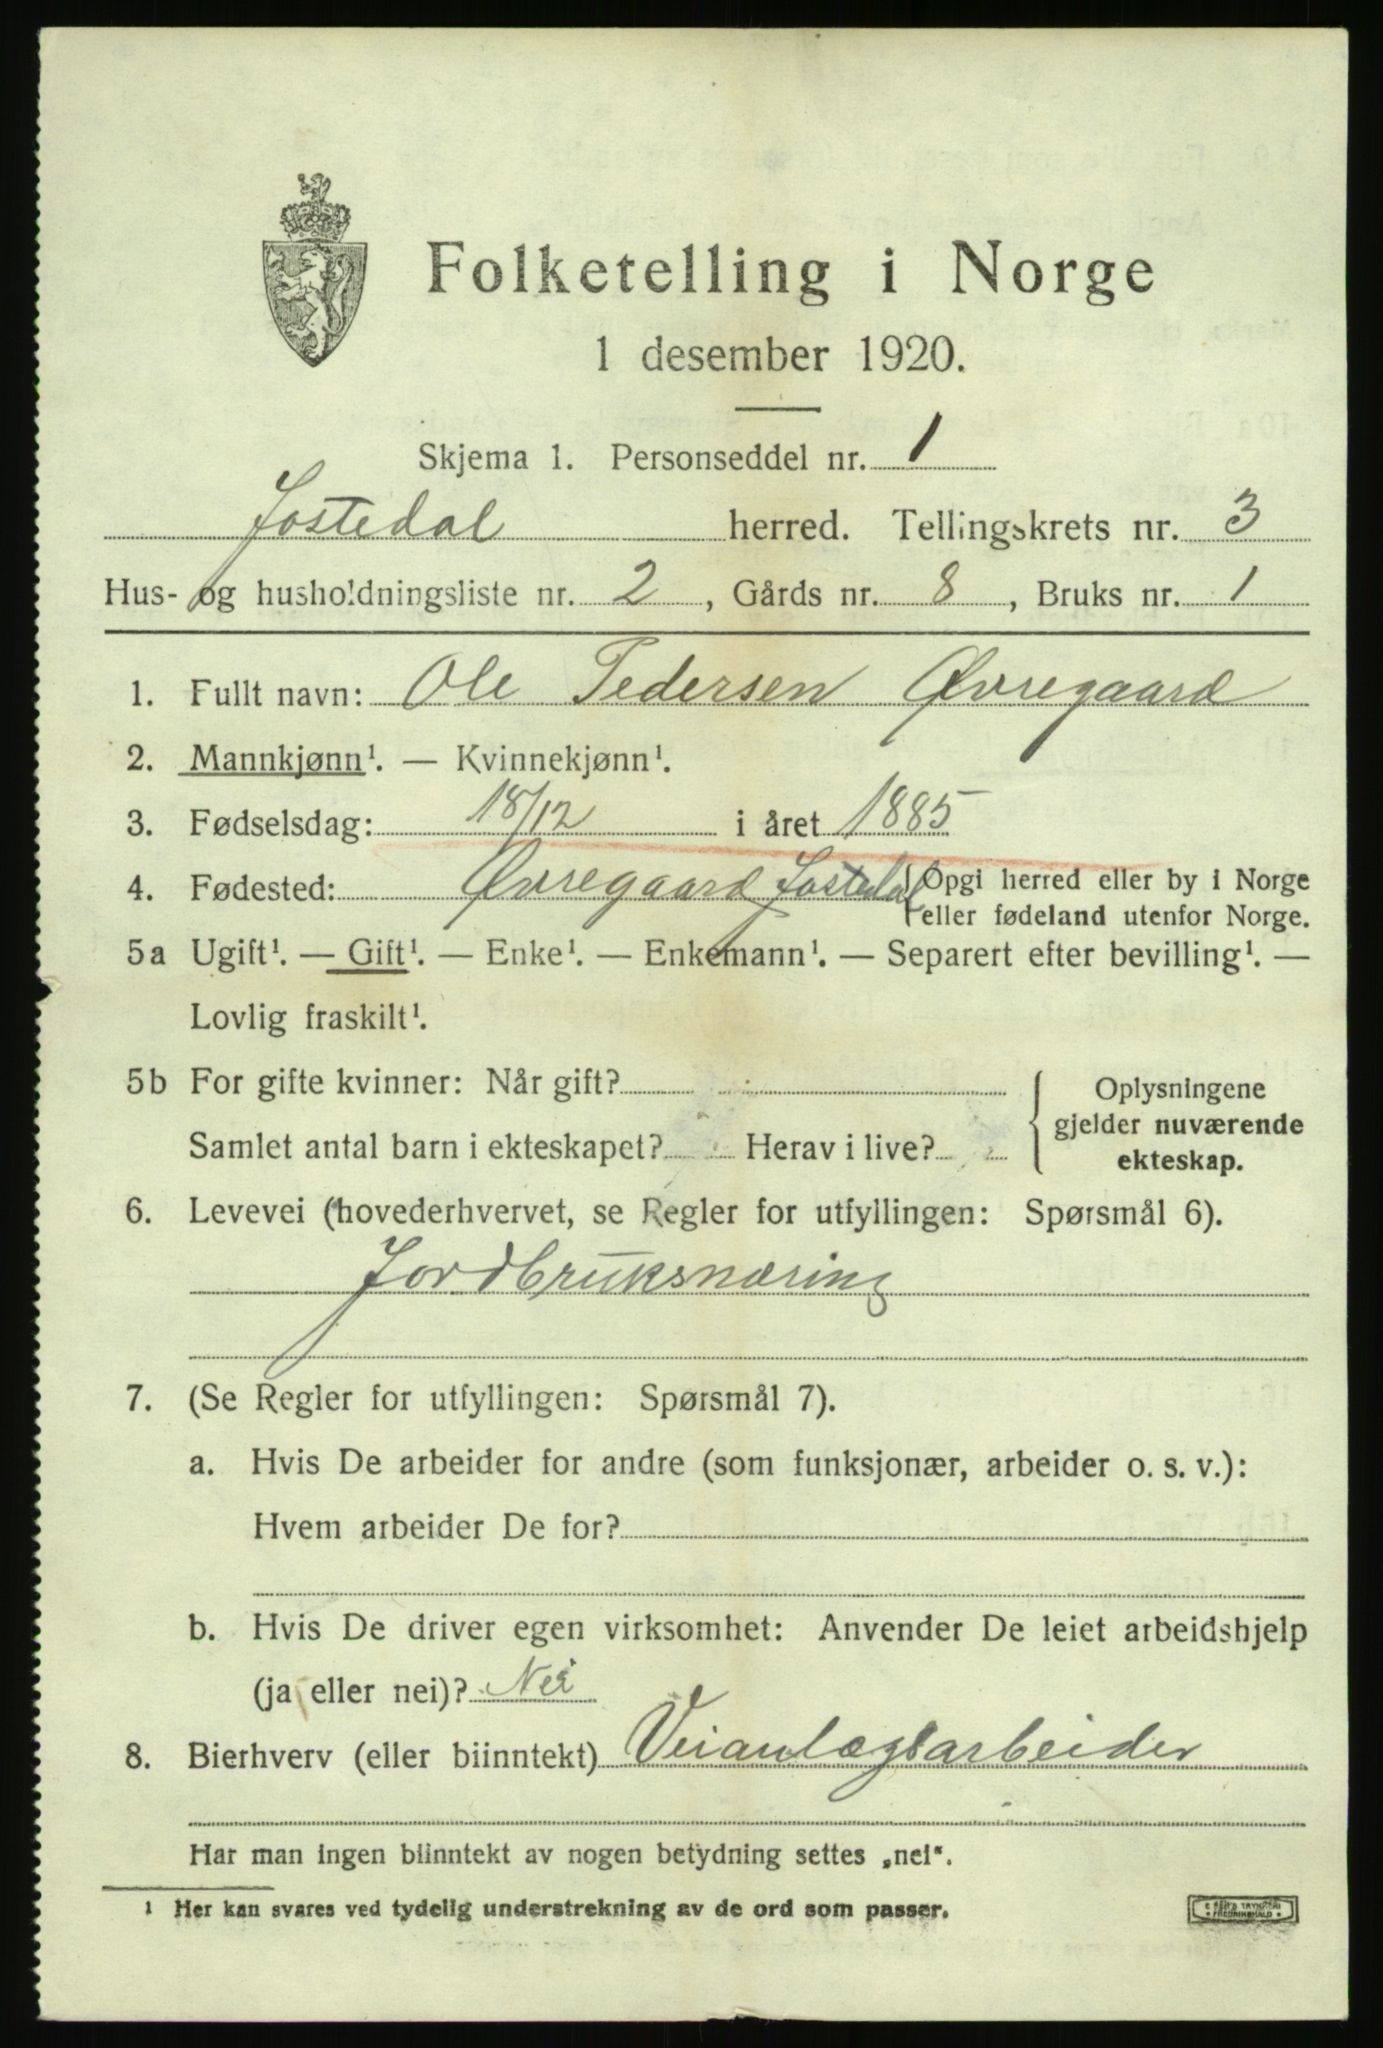 Folketelling i Norge
1 desember 1920.
Skjema 1. Personseddel nr. 1
Jostedal herred. Tellingskrets nr. 3
Hus- og husholdningsliste nr. 2, Gårds nr. 8, Bruks nr. 1
1. Fullt navn: Ole Pedersen Øvregaard
2. Mannkjønn¹. — Kvinnekjønn¹.
3. Fødselsdag: 18/12 i året 1885
4. Fødested: Øvregaard Jostedal { Opgi herred eller by i Norge
eller fødeland utenfor Norge.
5a Ugift¹. — Gift¹. — Enke¹. — Enkemann¹. — Separert efter bevilling¹. —
Lovlig fraskilt¹.
5b For gifte kvinner: Når gift?
Samlet antal barn i ekteskapet? Herav i live?
{ Oplysningene
gjelder nuværende
ekteskap.
6. Levevei (hovederhvervet, se Regler for utfyllingen: Spørsmål 6).
Jordbruksnæring
7. (Se Regler for utfyllingen: Spørsmål 7).
a. Hvis De arbeider for andre (som funksjonær, arbeider o. s. v.):
Hvem arbeider De for?
b. Hvis De driver egen virksomhet: Anvender De leiet arbeidshjelp
(ja eller nei)? Nei
8. Bierhverv (eller biinntekt) Veianlægsarbeider
Har man ingen biinntekt av nogen betydning settes „nei“.
1 Her kan svares ved tydelig understrekning av de ord som passer.